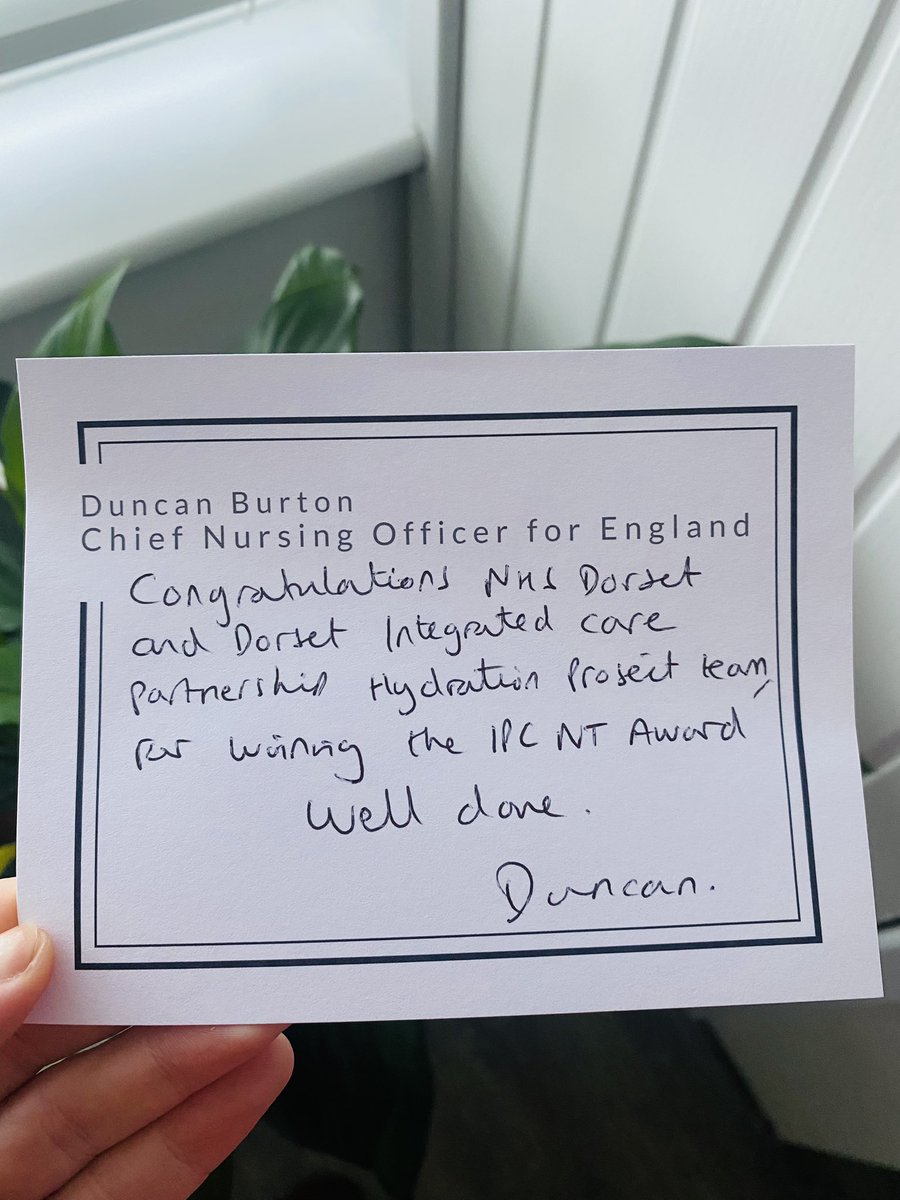 Duncan Burton
Chief Nursing Officer for England
Congratulations NHS Dorset
and Dorset Integrated care
partnership Hydration Project team,
for winning the IPC NT Award
Well done.
Duncan.